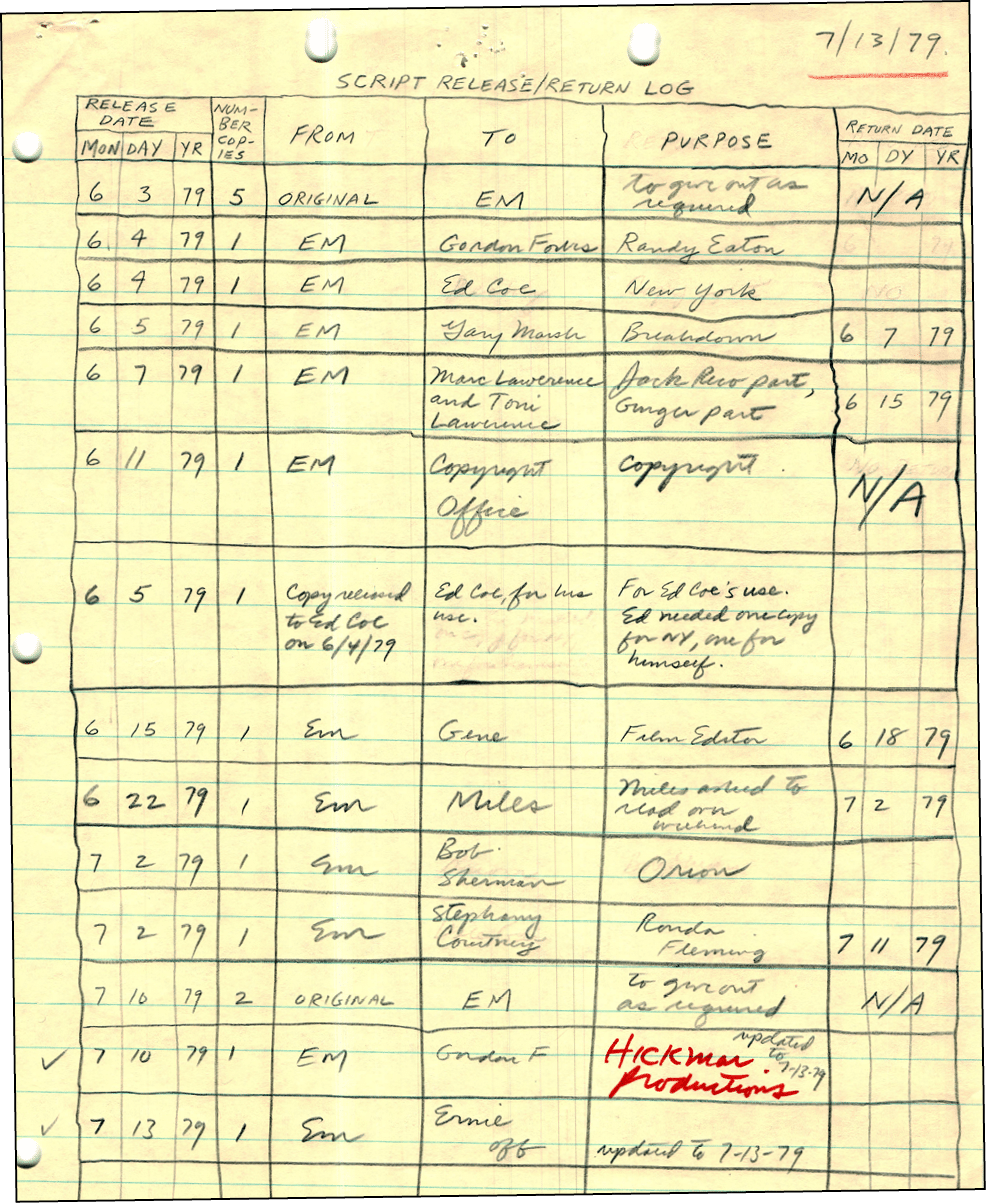 7/13/79.
SCRIPT RELEASE/RETURN LOG
RELEASE DATE NUM-BER COP-IES FROM TO PURPOSE RETURN DATE
MON DAY YR MO DY YR
6 3 79 5 ORIGINAL EM to give out as required N/A
6 4 79 1 EM Gordon Randy Eaton
6 4 79 1 EM Ed Coe New York
6 5 79 1 EM Gary Marsh Breakdown 6 7 79
6 7 79 1 EM Marc Lawerence Jack Rico part,
and Toni Ginger part 6 15 79
Lawerence
6 11 79 1 EM Copyright Copyright. N/A
Office
6 5 79 1 Copy released Ed Coe, for his For Ed Coe's use.
to Ed Coe use. Ed needed one copy
on 6/4/79 for NY, one for
himself.
6 15 79 1 Em Gene Film Editor 6 18 79
6 22 79 1 Em Miles Miles asked to 7 2 79
read over
weekend
7 2 79 1 Em Bob Sherman Orion
7 2 79 1 Em Stephany Ronda
Courtney Fleming 7 11 79
7 10 79 2 ORIGINAL EM to give out N/A
as required
✓ 7 10 79 1 EM Gordon F HICKmar updated
Productions to 7-13-79
✓ 7 13 79 1 Em Ernie
off updated to 7-13-79